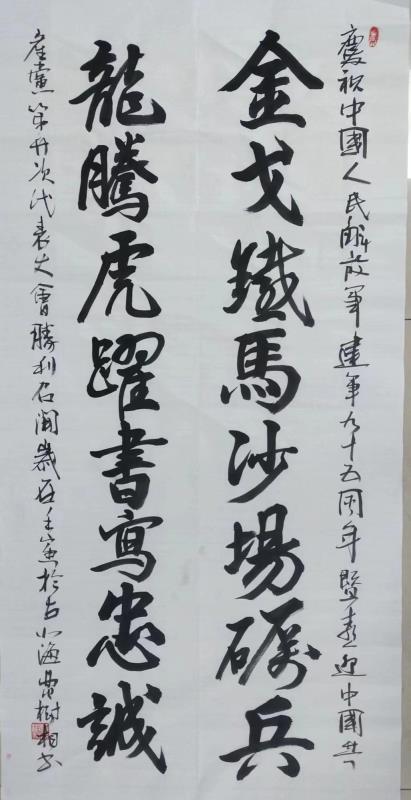 慶祝中國人民解放軍建軍九十五周年暨喜迎中國共
金戈鐵馬沙場礪兵
龍騰虎躍書寫忠誠
產黨第廿次代表大會勝利召開歲在壬寅於古小漁樹相書